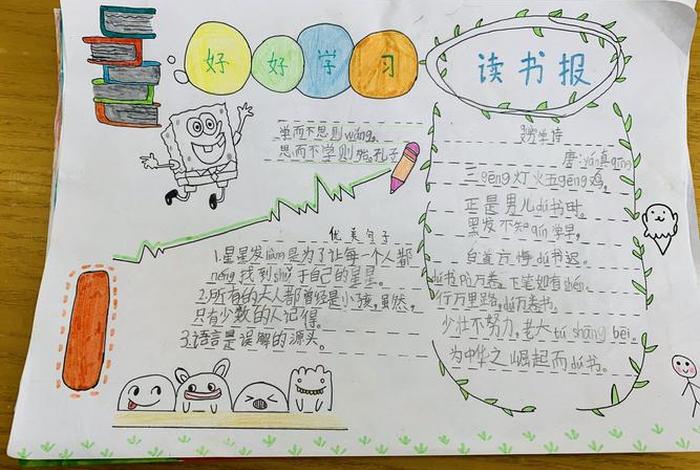 好好学习
读书报
学而不思则wǎng,
思而不学则殆。孔子
优美句子
1.星星发liàng是为了让每一个人都
néng找到shǔ于自己的星星。
2.所有的大人都曾经是小孩,虽然,
只有少数的人记得。
3.语言是误解的源头。
唐:yán真qīng
三gēng灯火五gēng鸡,
正是男儿dú书时。
黑发不知qín学早,
白首方悔dú书迟。
dú书破万卷,下笔如有shén。
行万里路,dú万卷书。
少壮不努力,老大tú shāng bēi。
为中华之崛起而dú书。